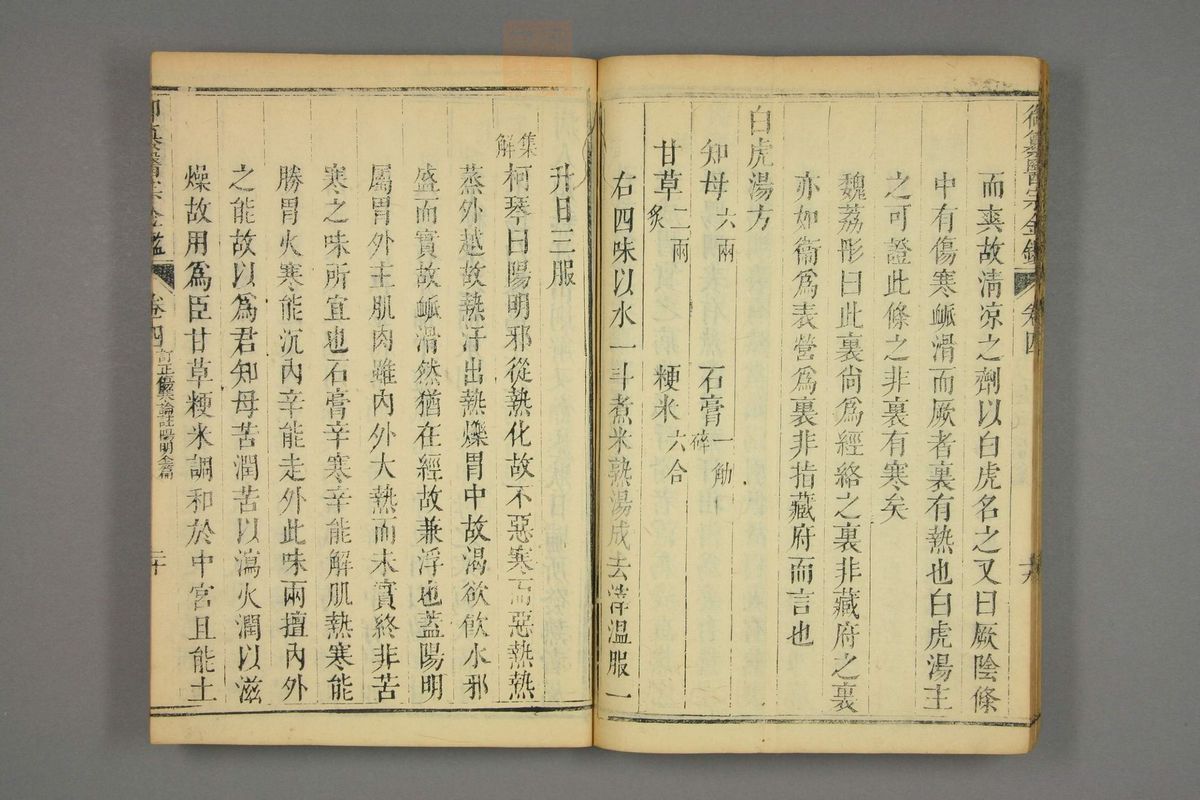 御纂醫宗金鑑 卷四
而爽故清凉之劑以白虎名之又曰厥陰條
中有傷寒䘑滑而厥者裏有熱也白虎湯主
之可證此條之非裏有寒矣
魏荔彤曰此裏尙爲經絡之裏非藏府之裏
亦如衞爲表營爲裏非指藏府而言也
白虎湯方
知母六兩 石膏一觔碎
甘草二兩炙 粳米六合
右四味以水一斗煮米熟湯成去滓温服一
升日三服
集解 柯琴曰陽明邪從熱化故不惡寒而惡熱熱
蒸外越故熱汗出熱爍胃中故渴欲飮水邪
盛而實故䘑滑然猶在經故兼浮也蓋陽明
屬胃外主肌肉雖內外大熱而未實終非苦
寒之味所宜也石膏辛寒辛能解肌熱寒能
勝胃火寒能沉內辛能走外此味兩擅內外
之能故以爲君知母苦潤苦以瀉火潤以滋
燥故用爲臣甘草粳米調和於中宮且能土
御纂醫宗金鑑 卷四 訂正傷寒論註陽明全篇 二十